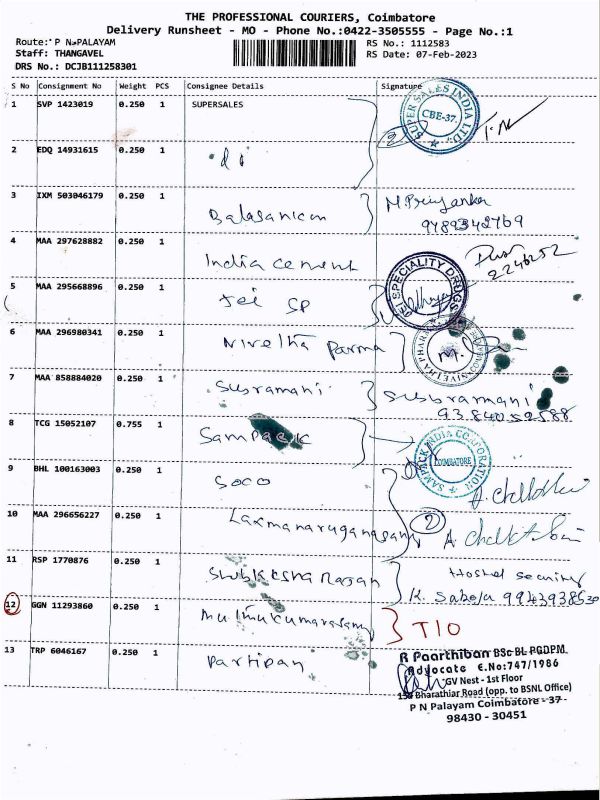 THE PROFESSIONAL COURIERS, Coimbatore
Delivery Runsheet - MO - Phone No.:0422-3505555 - Page No.:1
Route: P N PALAYAM
Staff: THANGAVEL
DRS No.: DCJB111258301
RS No.: 1112583
RS Date: 07-Feb-2023
S No Consignment No Weight PCS Consignee Details Signature
1 SVP 1423019 0.250 1 SUPERSALES
SUPER SALES INDIA LTD. CBE-37.
2 EDQ 14931615 0.250 1
3 IXM 503046179 0.250 1
M Priyanka
9789342769
4 MAA 297628882 0.250 1 India cement
2246252
5 MAA 295668896 0.250 1 Jei SP
JEI SPECIALITY DRUGS
6 MAA 296980341 0.250 1 Nivetha Parma
7 MAA 858884020 0.250 1 Subramani
Subramani
9384052588
8 TCG 15052107 0.755 1 Sampack
SAMPACK INDIA CORPORATION COIMBATORE
9 BHL 100163003 0.250 1 SOCO
10 MAA 296656227 0.250 1
2
11 RSP 1770876 0.250 1
Hostel security
12 GGN 11293860 0.250 1 Muthukumarasamy
13 TRP 6046167 0.250 1 Partipan
R Paarthiban BSc BL PGDPM
Advocate E.No:747/1986
GV Nest - 1st Floor
Bharathiar Road (opp. to BSNL Office)
P N Palayam Coimbatore - 37
98430 - 30451